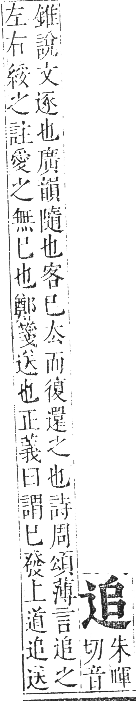 追
朱暉
切音
錐說文逐也廣韻隨也客已厺而復還之也詩周頌薄言追之
左右綏之註愛之無已也鄭箋送也正義曰謂已發上道追送